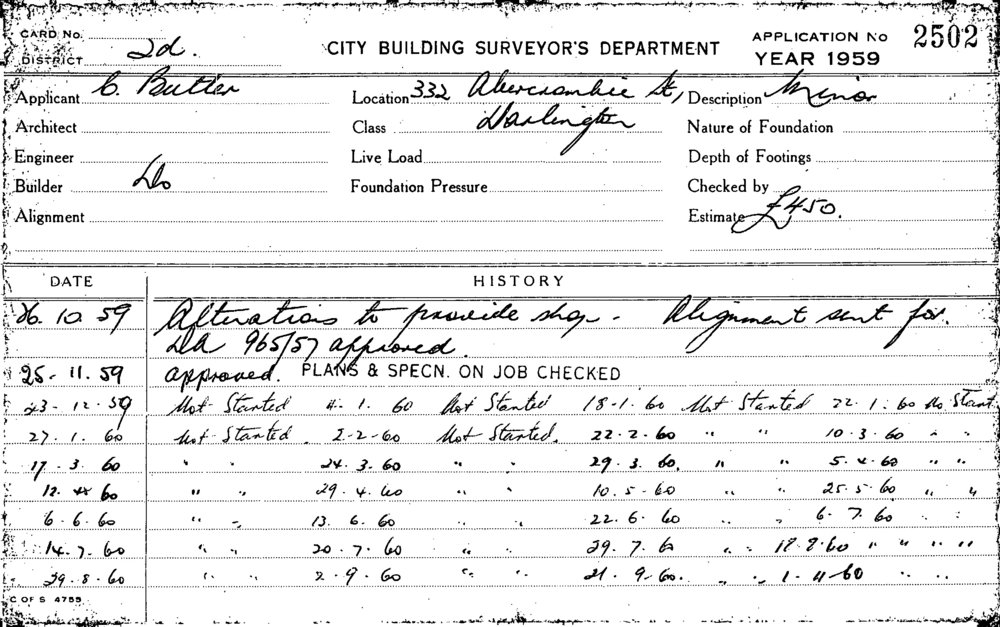 CARD No.
DISTRICT 2d.
CITY BUILDING SURVEYOR'S DEPARTMENT
APPLICATION No 2502
YEAR 1959
Applicant C. Butler Location 332 Abercrombie St, Description Minor
Architect Class Darlington Nature of Foundation
Engineer Live Load Depth of Footings
Builder Do Foundation Pressure Checked by
Alignment Estimate £450.
DATE HISTORY
26. 10. 59 Alterations to provide shop. Alignment sent for.
DA 965/57 approved.
25. 11. 59 approved. PLANS & SPECN. ON JOB CHECKED
23. 12. 59 Not Started 4. 1. 60 Not Started 18-1. 60 Not Started 22. 1. 60 No Start.
27. 1. 60 Not Started. 2-2-60 Not Started. 22. 2. 60 " " 10. 3. 60 " "
17. 3. 60 " " 24. 3. 60 " " 29. 3. 60. " " 5. 4. 60 " "
12. 4. 60 " " 29. 4. 60 " " 10. 5. 60 " " 25. 5. 60 " "
6. 6. 60 " " 13. 6. 60 " " 22. 6. 60 " " 6. 7. 60 " "
14. 7. 60 " " 20. 7. 60 " " 29. 7. 60 " " 18. 8. 60 " " " "
29. 8. 60 " " 2. 9. 60 " " 21. 9. 60. " " 1. 11. 60 " "
C OF S 4755